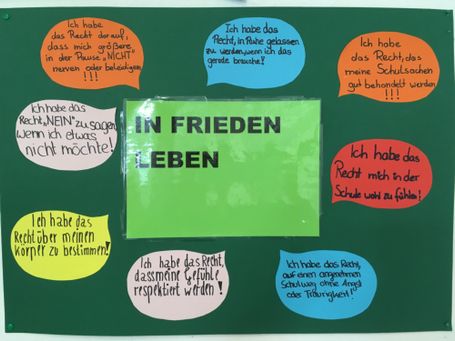 Ich habe
das Recht darauf,
dass mich größere
in der Pause „NICHT"
nerven oder beleidigen
!!!
Ich habe das
Recht, in Ruhe gelassen
zu werden, wenn ich das
gerade brauche!
Ich habe
das Recht, das
meine Schulsachen
gut behandelt werden
!!!
Ich habe das
Recht „NEIN" zu sagen,
wenn ich etwas
nicht möchte!
IN FRIEDEN
LEBEN
Ich habe das
Recht mich in der
Schule wohl zu fühlen!
Ich habe das
Recht über meinen
Körper zu bestimmen!
Ich habe das Recht,
dass meine Gefühle
respektiert werden!
Ich habe das Recht,
auf einen angenehmen
Schulweg ohne Angst
oder Traurigkeit!